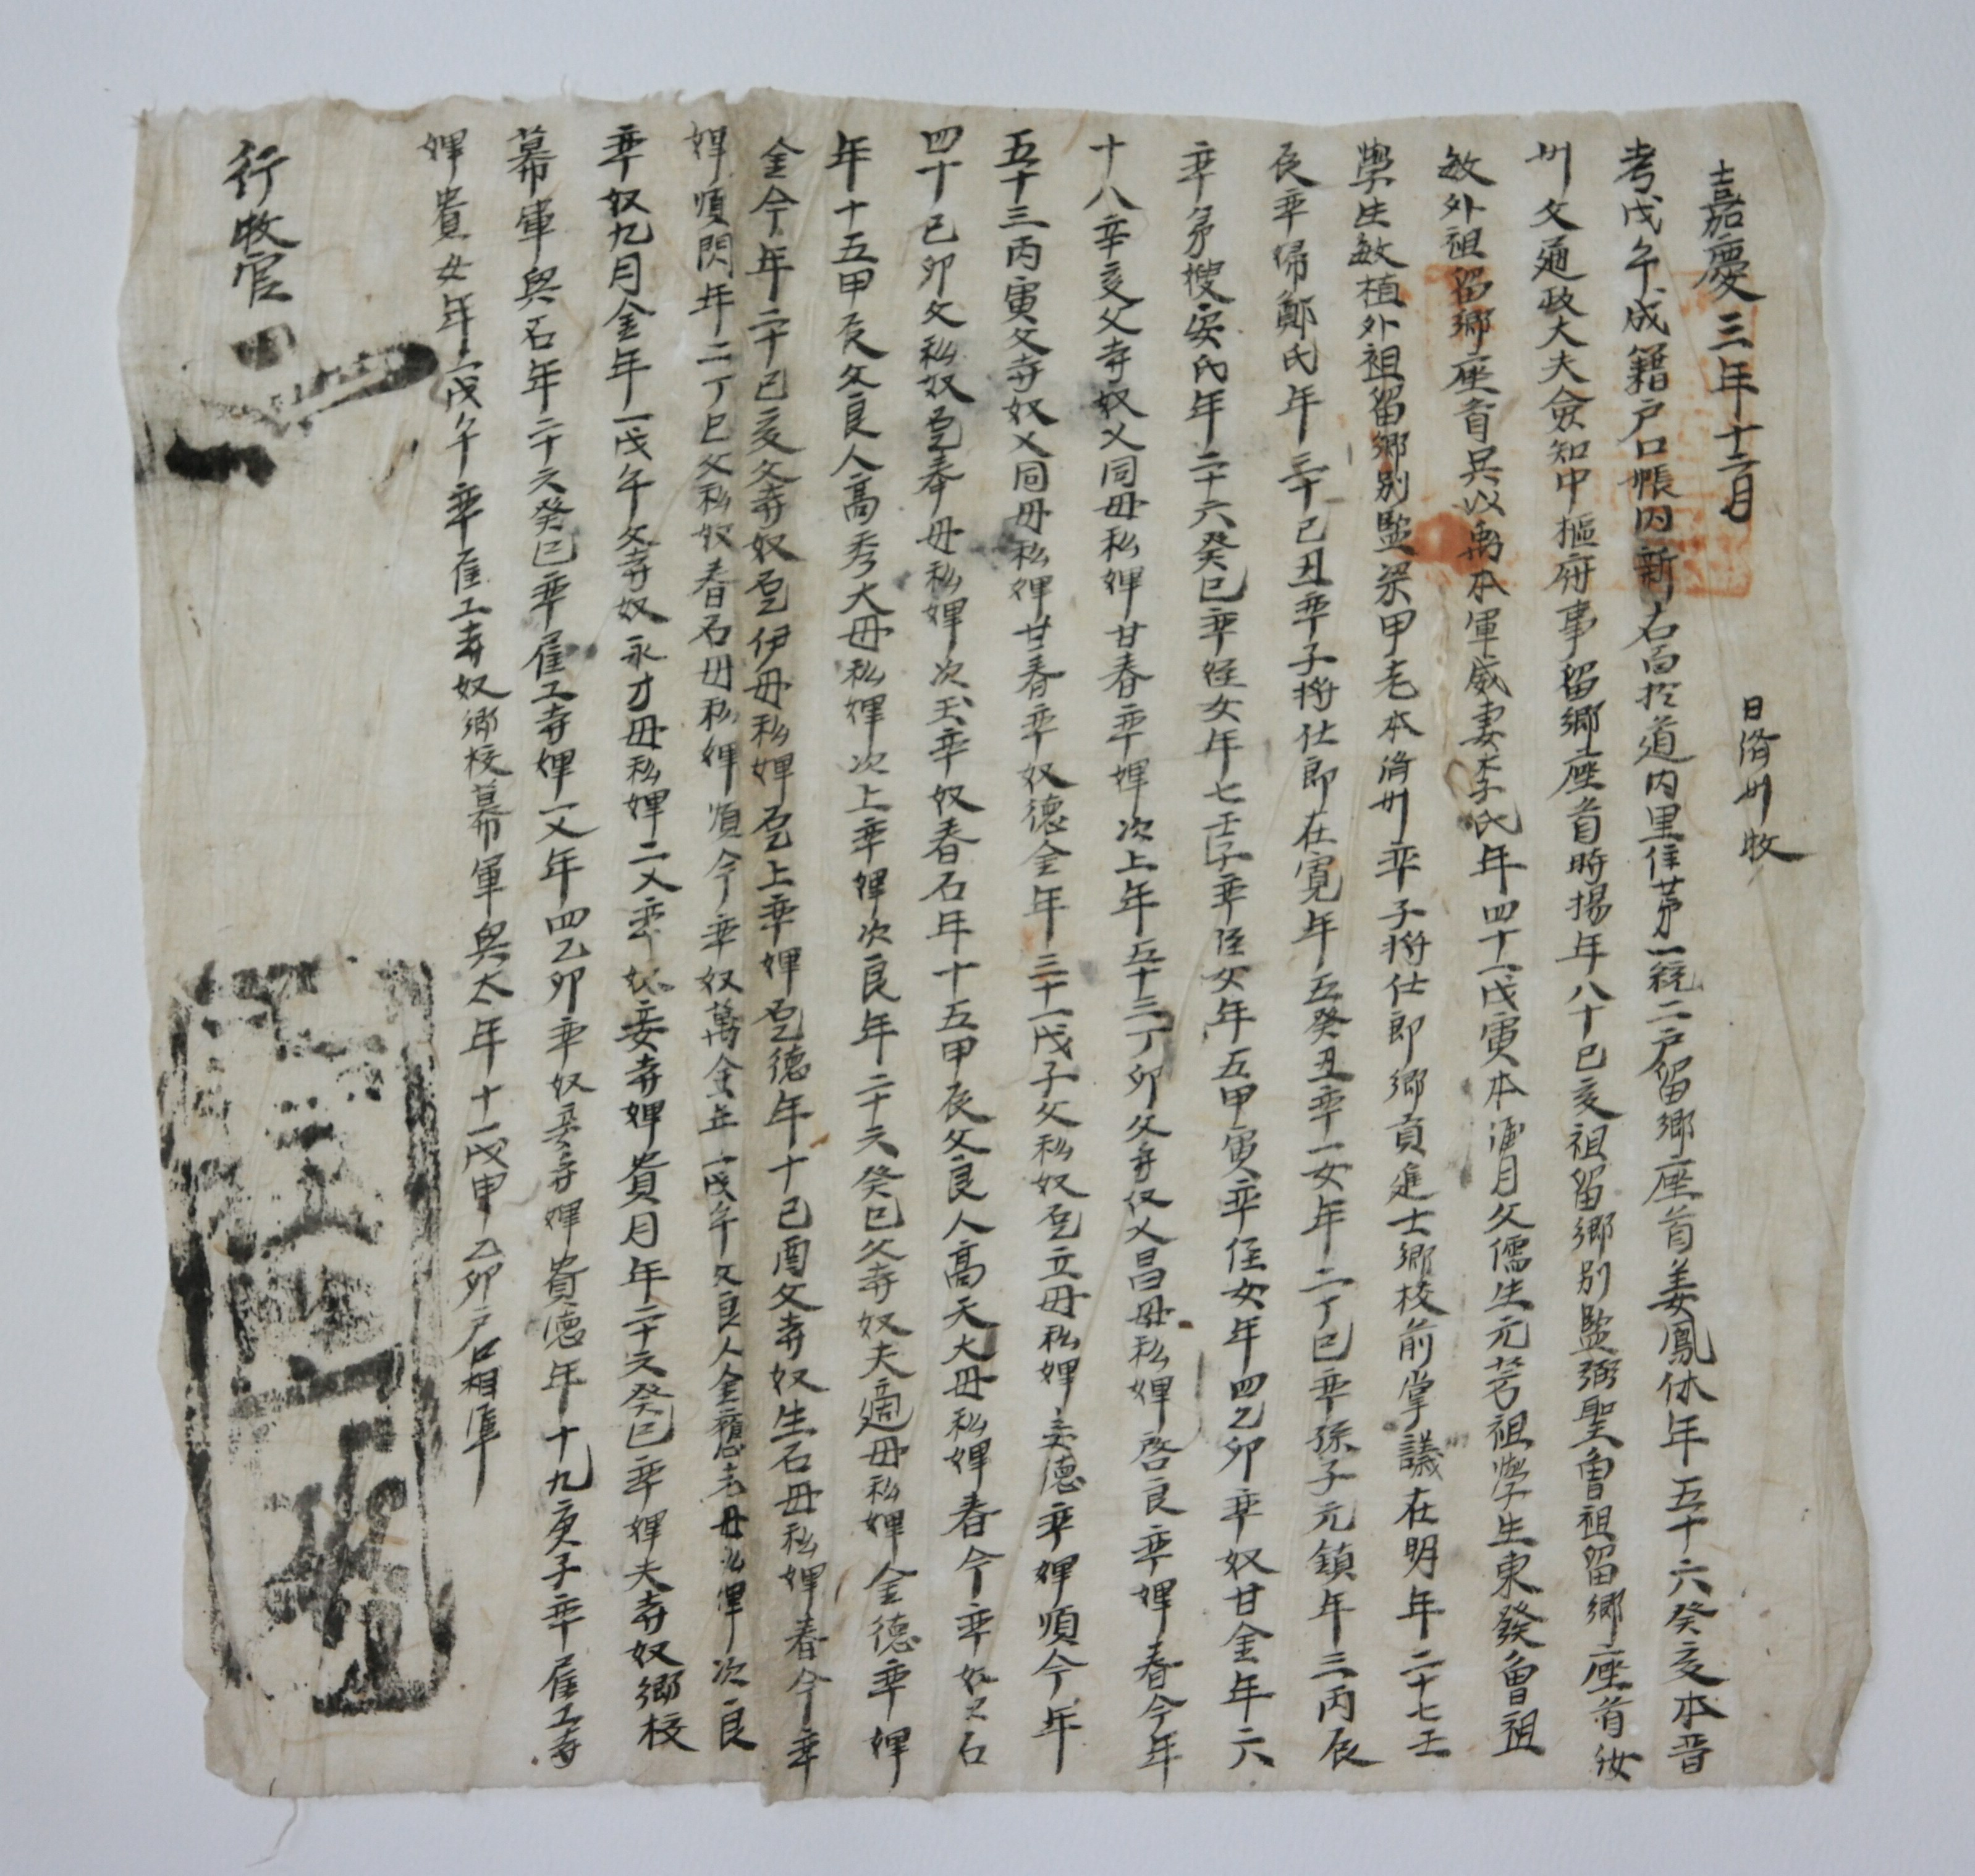 嘉慶三年十二月 日濟州牧
考戊午成籍戶口帳內新右面於道內里住苐一統二戶留鄕座首姜鳳休年五十六癸亥本晋
州父通政大夫僉知中樞府事留鄕座首時揚年八十己亥祖留鄕別監弼聖曾祖留鄕座首汝
敏外祖留鄕座首吳以禹本軍威妻李氏年四十一戊寅本 父儒生元芳祖學生東發曾祖
學生敏植外祖留鄕別監梁甲老本濟州率子將仕郞鄕貢進士鄕校前掌議在明年二十七壬
辰率婦鄭氏年三十己丑率子將仕郞在寬年五癸丑率一女年二丁巳率孫子元鎭年三丙辰
率弟嫂安氏年二十六癸巳率侄女年七壬子率侄女年五甲寅率侄女年四乙卯率奴甘金年六
十八辛亥父寺奴乂同母私婢甘春率婢次上年五十三丁卯父寺奴乂昌母私婢啓良率婢春今年
五十三丙寅父寺奴乂同母私婢甘春率奴德金年三十一戊子父私奴乭立母私婢 德率婢順今年
四十己卯父私奴乭奉母私婢次玉率奴春石年十五甲辰父良人高天大母私婢春今率奴 石
年十五甲辰父良人高秀大母私婢次上率婢次良年二十六癸巳父寺奴夫適母私婢金德率婢
金今年二十己亥父寺奴乭伊母私婢乭上率婢乭德年十己酉父寺奴生石母私婢春今率
婢順閃年二丁巳父私奴春石母私婢順今率奴萬金年一戊午父良人金 老母私婢次良
率奴九月金年一戊午父寺奴永才母私婢二乂率奴妾寺婢貴月年二十六癸巳率婢夫寺奴鄕校
幕軍與石年二十六癸巳率雇工寺婢一乂年四乙卯率奴妾寺婢貴德年十九庚子率雇工寺
婢貴女年一戊午率雇工寺奴鄕校幕軍與太年十一戊申乙卯戶口相準
行牧官